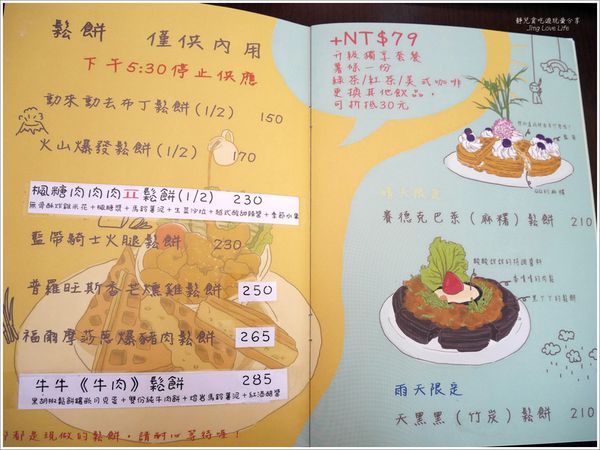 鬆餅 僅供內用
下午5:30停止供應
動來動去布丁鬆餅(1/2) 150
火山爆發鬆餅(1/2) 170
楓糖肉肉肉Ⅱ鬆餅(1/2) 230
無骨酥炸雞米花+楓糖漿+馬鈴薯泥+生菜沙拉+越式酸甜辣醬+季節水果
藍帶騎士火腿鬆餅 230
普羅旺斯香芒燻雞鬆餅 250
福爾摩莎蔥爆豬肉鬆餅 265
牛牛《牛肉》鬆餅 285
都是現做的鬆餅，請耐心等待喔！
靜兒貪吃遊玩愛分享
Jing Love Life
+NT$79
升級獨享套餐
薯條一份
綠茶/紅茶/美式咖啡
更換其他飲品，
可折抵30元
晴天限定
賽德克巴萊(麻糬)鬆餅 210
雨天限定
天黑黑(竹炭)鬆餅 210